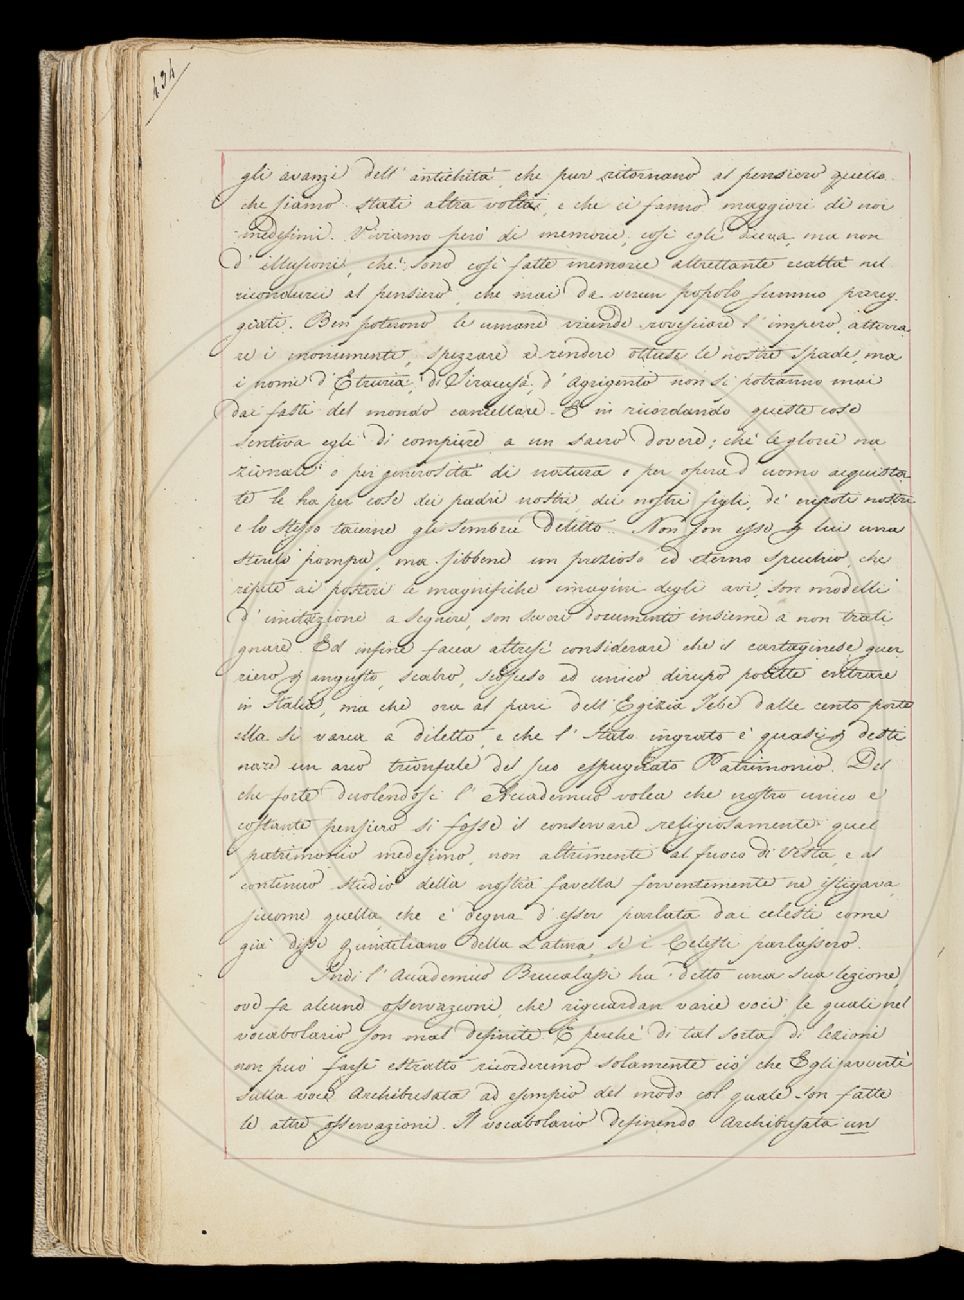 434
gli avanzi dell' antichità, che pur ritornano al pensiero quello
che siamo stati altra volta, e che ci fanno maggiori di noi
medesimi. Viviamo però di memorie, così egli diceva, ma non
d' illusioni, chè sono così fatte memorie altrettante realtà nel
ricondurci al pensiero, che mai da verun popolo fummo pareg-
giati. Ben poterono le umane vicende rovesciare l' impero, atterra-
re i monumenti, spezzare e rendere ottuse le nostre spade, ma
i nomi d' Etruria, di Siracusa, d' Agrigento non si potranno mai
dai fasti del mondo cancellare. E in ricordando queste cose
sentiva egli di compiere a un sacro dovere; chè le glorie na
zionali o per generosità di natura o per opera d' uomo acquista-
te le ha per cose dei padri nostri dei nostri figli, de' nepoti nostri
e lo stesso tacerne gli sembra delitto. Non son esse p lui una
sterile pompa, ma sibbene un prezioso ed eterno specchio, che
ripete ai posteri le magnifiche imagini degli avi, son modelli
d' imitazione a seguire, son sacri documenti insieme a non trali
gnare. Ed infine facea altresì considerare che il cartaginese guer
riero p angusto, scabro, scosceso ed unico dirupo potette entrare
in Italia, ma che ora al pari dell' Egizia Tebe dalle cento porte
ella si varca a diletto, e che l' Italo ingrato è quasi p desti
nare un arco trionfale del suo espugnato Patrimonio. Del
che forte dolendosi l' Accademico volea che nostro unico e
costante pensiero si fosse il conservare religiosamente quel
patrimonio medesimo, non altrimenti al fuoco di Vesta, e al
continuo studio della nostra favella ferventemente ne istigava,
siccome quella, che è degna d' esser parlata dai celesti come
già disse Quintiliano della Latina, se i Celesti parlassero.
Indi l' Accademico Brucalassi ha detto una sua lezione,
ove fa alcune osservazioni, che riguardan varie voci, le quali nel
vocabolario son mal definite. E perchè di tal sorta di lezioni
non può farsi estratto ricorderemo solamente ciò che Egli avvertì
sulla voce Archibusata ad esempio del modo col quale son fatte
le altre osservazioni. Il vocabolario definendo Archibusata un